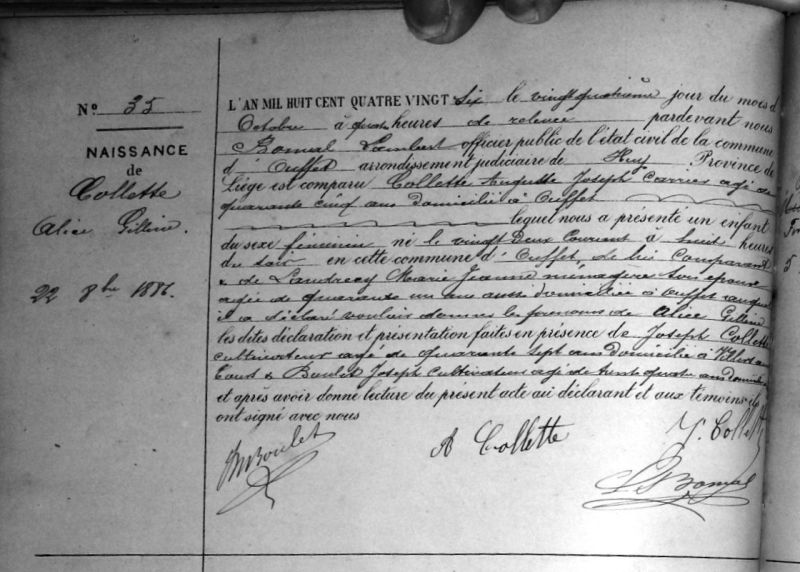 N° 35
NAISSANCE
de
Collette
Alice Gilline.
22 8bre 1886.
L'AN MIL HUIT CENT QUATRE VINGT Six le vingt quatrième jour du mois d
Octobre à quatre heures de relevée pardevant nous
Bomal Lambert officier public de l'état civil de la commune
d' Ouffet arrondissement judiciaire de Huy Province de
Liège est comparu Collette Auguste Joseph Carrier agé de
quarante cinq ans domicilié à Ouffet
lequel nous a présenté un enfant
du sexe féminin né le vingt Deux Courant à huit heures
du soir en cette commune d' Ouffet, de lui Comparant
& de Landrecy Marie Jeanne ménagère son épouse
agée de quarante un ans aussi domiciliée à Ouffet auquel
il a déclaré vouloir donner les prénoms de Alice Gilline
les dites déclaration et présentation faites en présence de Joseph Collette
cultivateur agé de quarante sept ans Domicilié à
& Boulet Joseph cultivateur agé de trente quatre ans
et après avoir donné lecture du présent acte au déclarant et aux témoins ils
ont signé avec nous
Boulet
A Collette
J. Collette
L Bomal
5